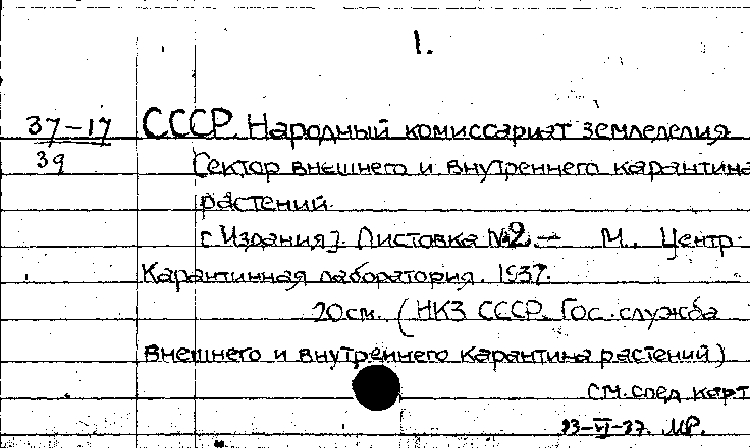 1.
37-17 СССР. Народный комиссариат земледелия
39 Сектор внешнего и внутреннего карантина
растений.
[Издания]. Листовка №2. — М. Центр.
Карантинная лаборатория. 1937.
20 см. (НКЗ СССР. Гос. служба
внешнего и внутреннего карантина растений)
см. след. карт
23-VI-37. МР.